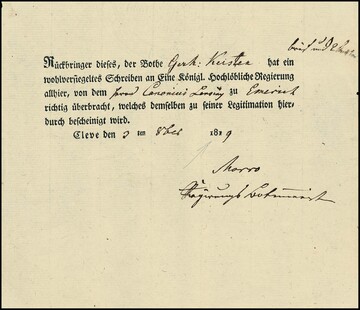 Rückbringer dieses, der Bothe Gerh: Kersten hat ein
wohlversiegeltes Schreiben an Eine Königl. Hochlöbliche Regierung
allhier, von dem Canonicus zu Emerich
richtig überbracht, welches demselben zu seiner Legitimation hier-
durch bescheinigt wird.
Cleve den 3 ten 8ber 1819